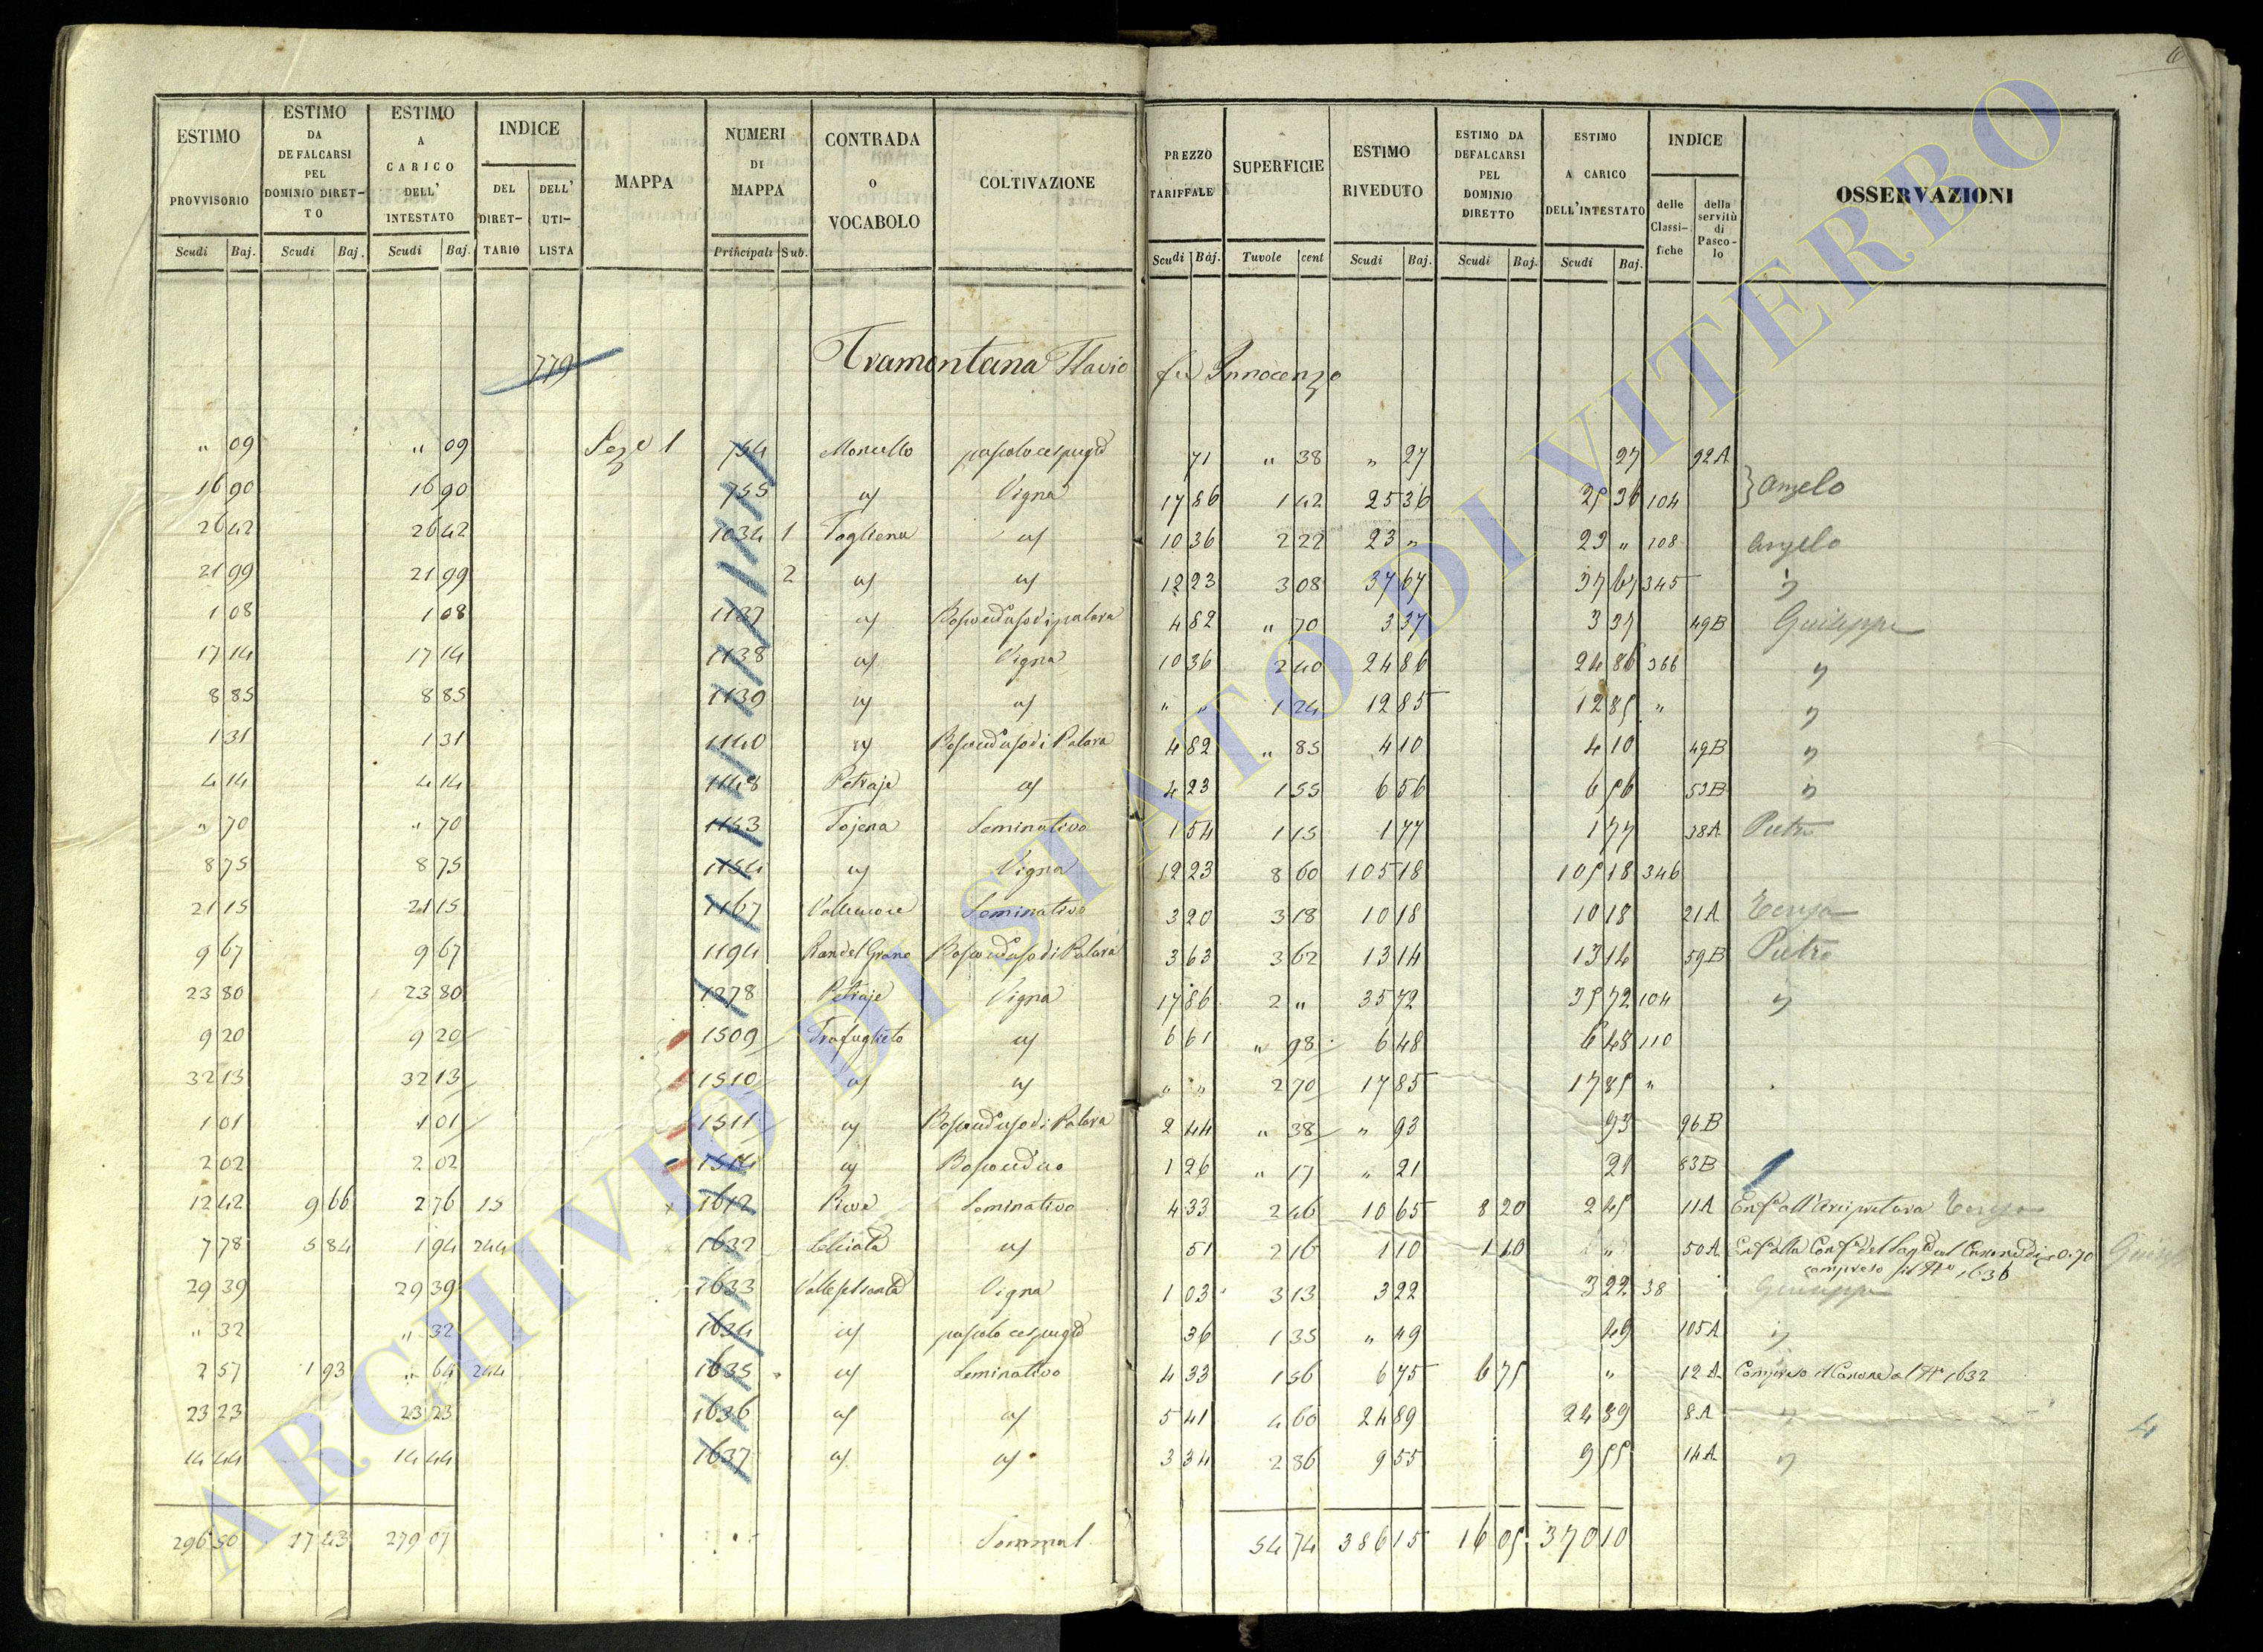 6
ESTIMO PROVVISORIO | ESTIMO DA DEFALCARSI PEL DOMINIO DIRET-TO | ESTIMO A CARICO DELL' INTESTATO | INDICE DEL DIRET-TARIO | DELL' UTI-LISTA | MAPPA | NUMERI DI MAPPA | CONTRADA O VOCABOLO | COLTIVAZIONE | PREZZO TARIFFALE | SUPERFICIE | ESTIMO RIVEDUTO | ESTIMO DA DEFALCARSI PEL DOMINIO DIRETTO | ESTIMO A CARICO DELL'INTESTATO | INDICE delle Classi-fiche | della servitù di Pasco-lo | OSSERVAZIONI
Scudi Baj. | Scudi Baj. | Scudi Baj. | Principali Sub. | Scudi Baj. | Tavole cent | Scudi Baj. | Scudi Baj. | Scudi Baj.
779 Tramontana Flavio fu Innocenzo
" 09 | " 09 | Seze 1 | 754 | pascolo cespugto | 71 | " 38 | " 27 | 27 | 92A
16 90 | 16 90 | 755 | a/ | Vigna | 17 86 | 1 42 | 25 36 | 25 36 | 104 | } Angelo
26 42 | 26 42 | 1034 1 | Togliena | a/ | 10 36 | 2 22 | 23 " | 23 " | 108 | Angelo
21 99 | 21 99 | 2 | a/ | a/ | 12 23 | 3 08 | 37 67 | 37 67 | 345 | "
1 08 | 1 08 | 1137 | a/ | 4 82 | " 70 | 3 37 | 3 37 | 49B | Guiseppe
17 14 | 17 14 | 1138 | a/ | Vigna | 10 36 | 2 40 | 24 86 | 24 86 | 366 | "
8 85 | 8 85 | 1139 | a/ | a/ | " " | 1 24 | 12 85 | 12 85 | " | "
1 31 | 1 31 | 1140 | a/ | 4 82 | " 85 | 4 10 | 4 10 | 49B | "
4 14 | 4 14 | 1148 | Petraje | a/ | 4 23 | 1 55 | 6 56 | 6 56 | 53B | "
" 70 | " 70 | 1153 | Tojena | Seminativo | 1 54 | 1 15 | 1 77 | 1 77 | 38A | Pietro
8 75 | 8 75 | 1154 | a/ | Vigna | 12 23 | 8 60 | 105 18 | 105 18 | 346
21 15 | 21 15 | 1167 | Seminativo | 3 20 | 3 18 | 10 18 | 10 18 | 21A | Teresa
9 67 | 9 67 | 1194 | Pian del Grano | 3 63 | 3 62 | 13 14 | 13 14 | 59B | Pietro
23 80 | 23 80 | 1278 | Petraje | Vigna | 17 86 | 2 " | 35 72 | 35 72 | 104 | "
9 20 | 9 20 | 1509 | Trafuglieto | a/ | 6 61 | " 98 | 6 48 | 6 48 | 110
32 13 | 32 13 | 1510 | a/ | a/ | " " | 2 70 | 17 85 | 17 85 | "
1 01 | 1 01 | 1511 | a/ | 2 44 | " 38 | " 93 | 93 | 96B
2 02 | 2 02 | 1514 | a/ | 1 26 | " 17 | " 21 | 21 | 83B
12 42 | 9 66 | 2 76 | 15 | 1612 | Rive | Seminativo | 4 33 | 2 46 | 10 65 | 8 20 | 2 45 | 11A | Enfa all'Arcipretura Teresa
7 78 | 5 84 | 1 94 | 244 | 1632 | a/ | 51 | 2 16 | 1 10 | 1 10 | " | 50A | Enfa alla Confa del Sagto col Canone di 0.70
compreso il No 1636
29 39 | 29 39 | 1633 | Vigna | 1 03 | 3 13 | 3 22 | 3 22 | 38 | Giuseppe
" 32 | " 32 | 1634 | a/ | pascolo cespugto | 36 | 1 35 | " 49 | 49 | 105A | "
2 57 | 1 93 | " 64 | 244 | 1635 | a/ | Seminativo | 4 33 | 1 56 | 6 75 | 6 75 | " | 12A | Compreso il Canone al No 1632
23 23 | 23 23 | 1636 | a/ | a/ | 5 41 | 4 60 | 24 89 | 24 89 | 8A | "
14 44 | 14 44 | 1637 | a/ | a/ | 3 34 | 2 86 | 9 55 | 9 55 | 14A | "
4
296 50 | 17 43 | 279 07 | Somma | 54 74 | 386 15 | 16 05 | 370 10
ARCHIVIO DI STATO DI VITERBO